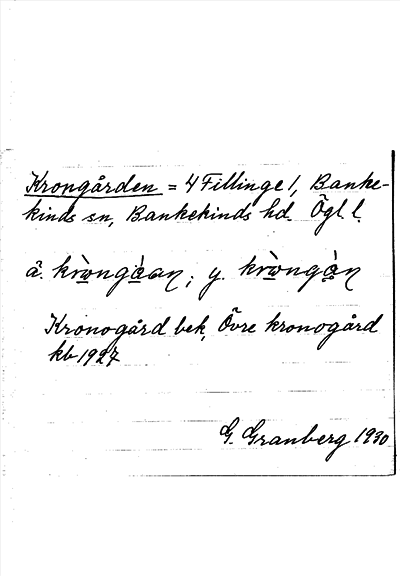 Krongården = 4 Fillinge 1, Banke-
kinds sn, Bankekinds hd. Ögl. l.
å. kròngåan; y. kròngån
Kronogård bek, Övre kronogård
kb 1927
G. Granberg 1930